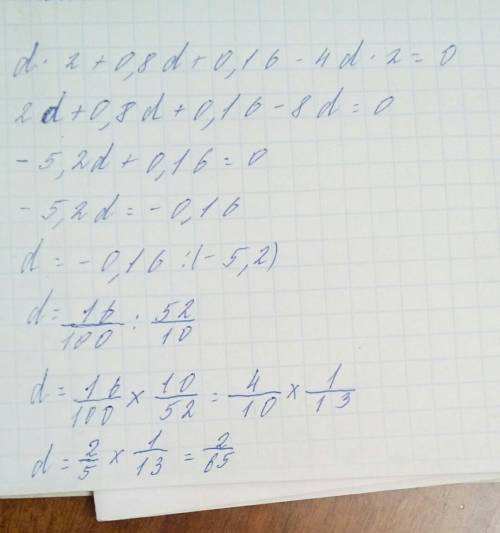 d · 2 + 0,8d + 0,16 - 4d · 2 = 0
2d + 0,8d + 0,16 - 8d = 0
- 5,2d + 0,16 = 0
- 5,2d = - 0,16
d = - 0,16 : (- 5,2)
d = 16/100 : 52/10
d = 16/100 × 10/52 = 4/10 × 1/13
d = 2/5 × 1/13 = 2/65